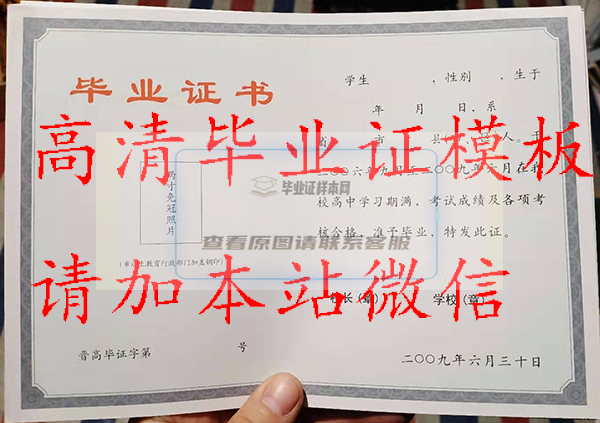 毕业证书
学生 ，性别 ，生于
年 月 日、系
省 市 县( )人。于
高清毕业证模板
二〇〇六年九月至二〇〇九年六月在我
两寸免冠照片
毕业证样本网
校高中学习期满，考试成绩及各项考
查看原图请联系客服
核合格，准予毕业，特发此证。
(市)主教育行政部门加盖钢印)
请加本站微信
校长(章) 学校(章)
晋高毕证字第 号
二〇〇九年六月三十日